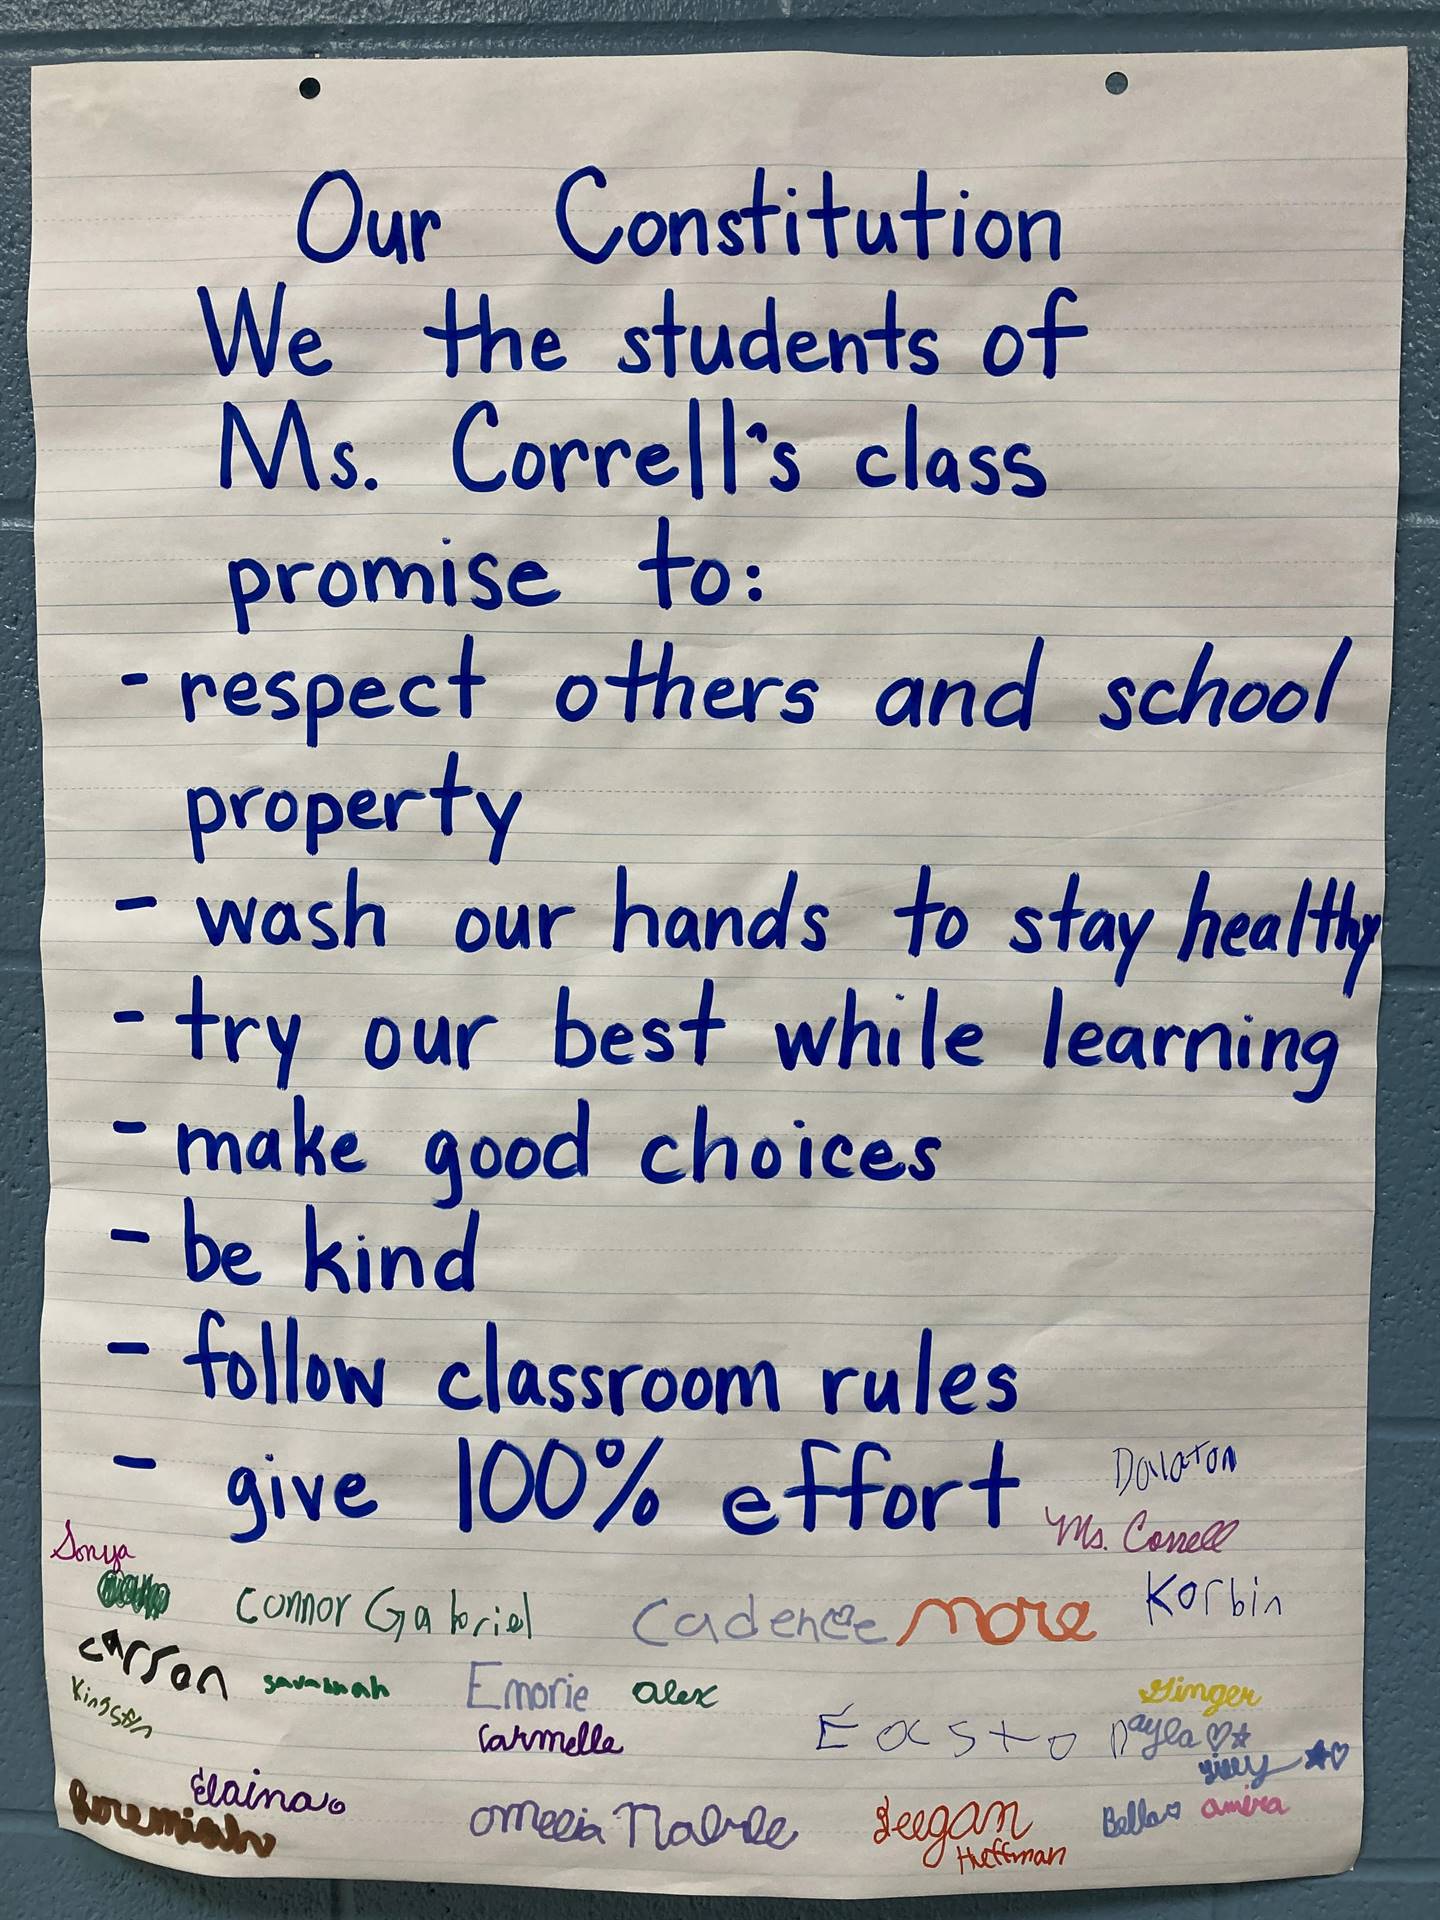 Our Constitution
We the students of
Ms. Correll's class
promise to:
- respect others and school
property
- wash our hands to stay healthy
- try our best while learning
- make good choices
- be kind
- follow classroom rules
- give 100% effort
Ms. Correll
Sonya
Connor Gabriel Cadence Korbin
Carson savannah Emorie alex Ginger
Kingston Carmelle Easto Nayla
Elaina
Keegan Bella amira
Huffman